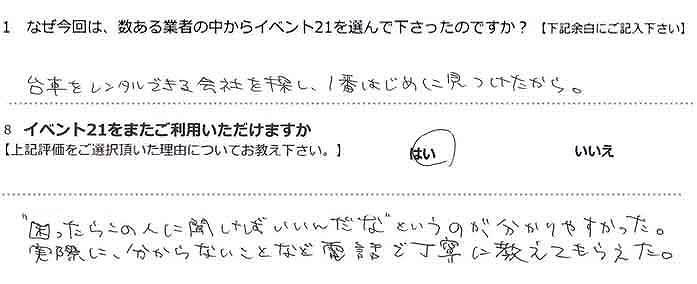 1 なぜ今回は、数ある業者の中からイベント21を選んで下さったのですか？【下記余白にご記入下さい】
台車をレンタルできる会社を探し、1番はじめに見つけたから。
8 イベント21をまたご利用いただけますか
【上記評価をご選択頂いた理由についてお教え下さい。】 はい いいえ
"困ったらこの人に聞けばいいんだな"というのが分かりやすかった。
実際に、分からないことなど電話で丁寧に教えてもらえた。